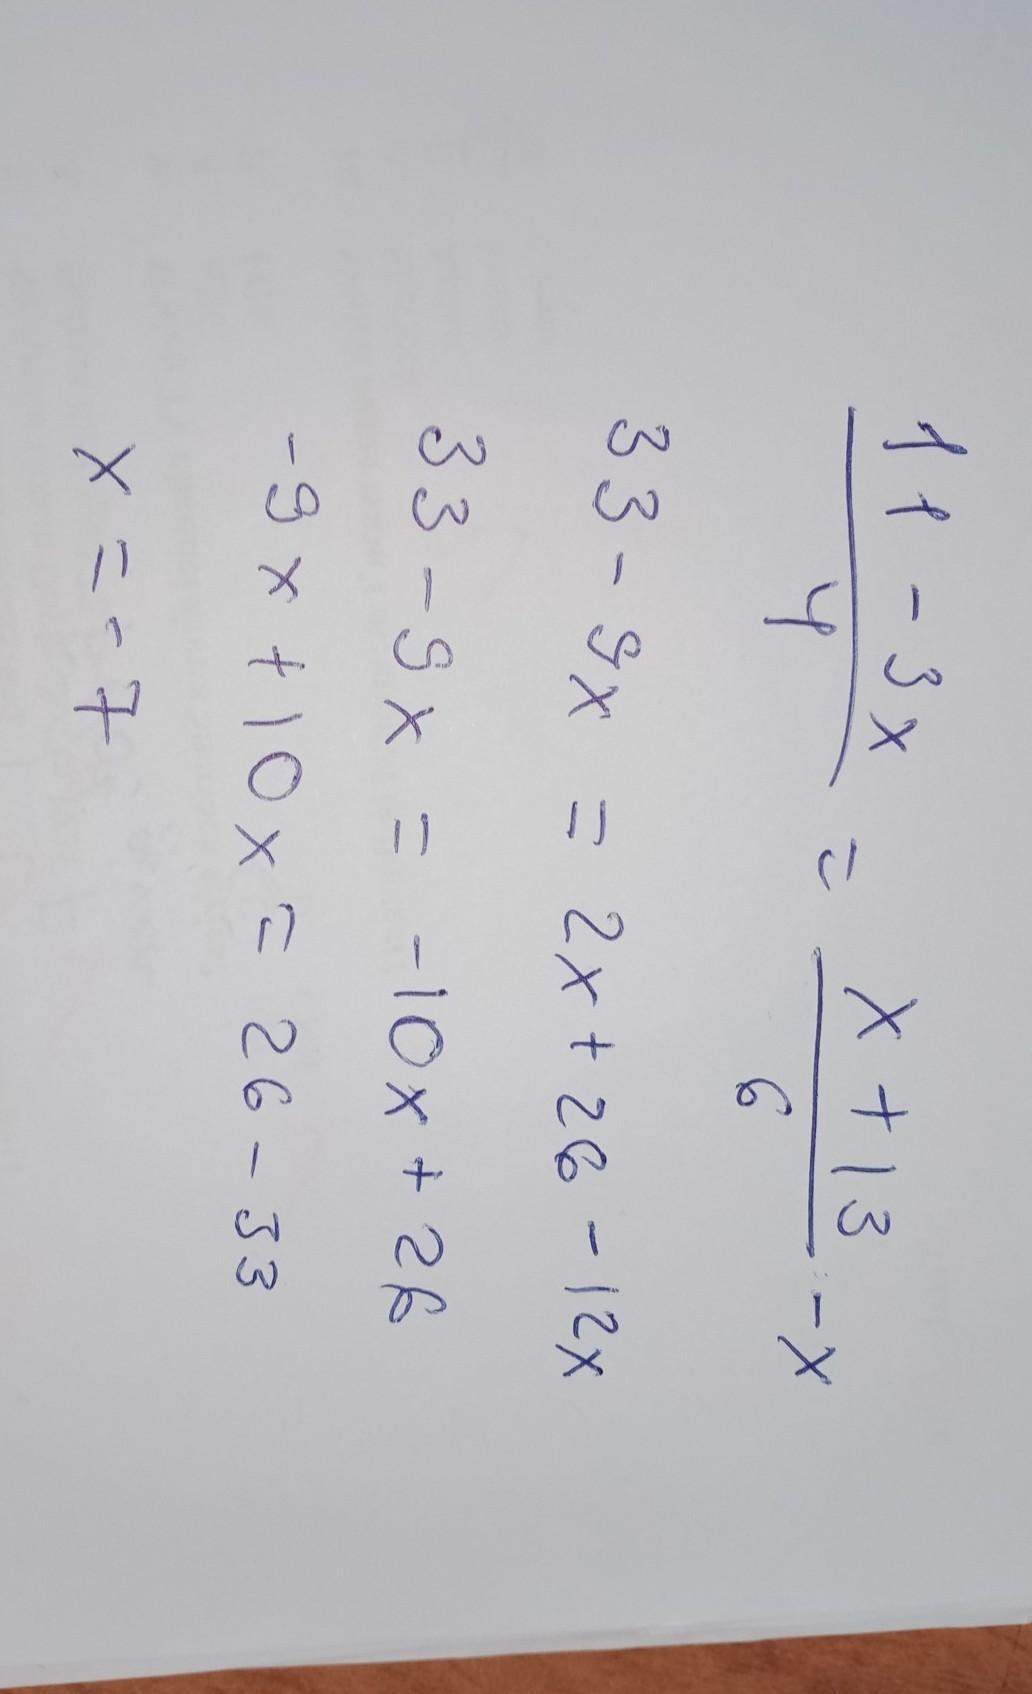 11 - 3x / 4 = x + 13 / 6 - x
33 - 9x = 2x + 26 - 12x
33 - 9x = -10x + 26
-9x + 10x = 26 - 33
x = -7